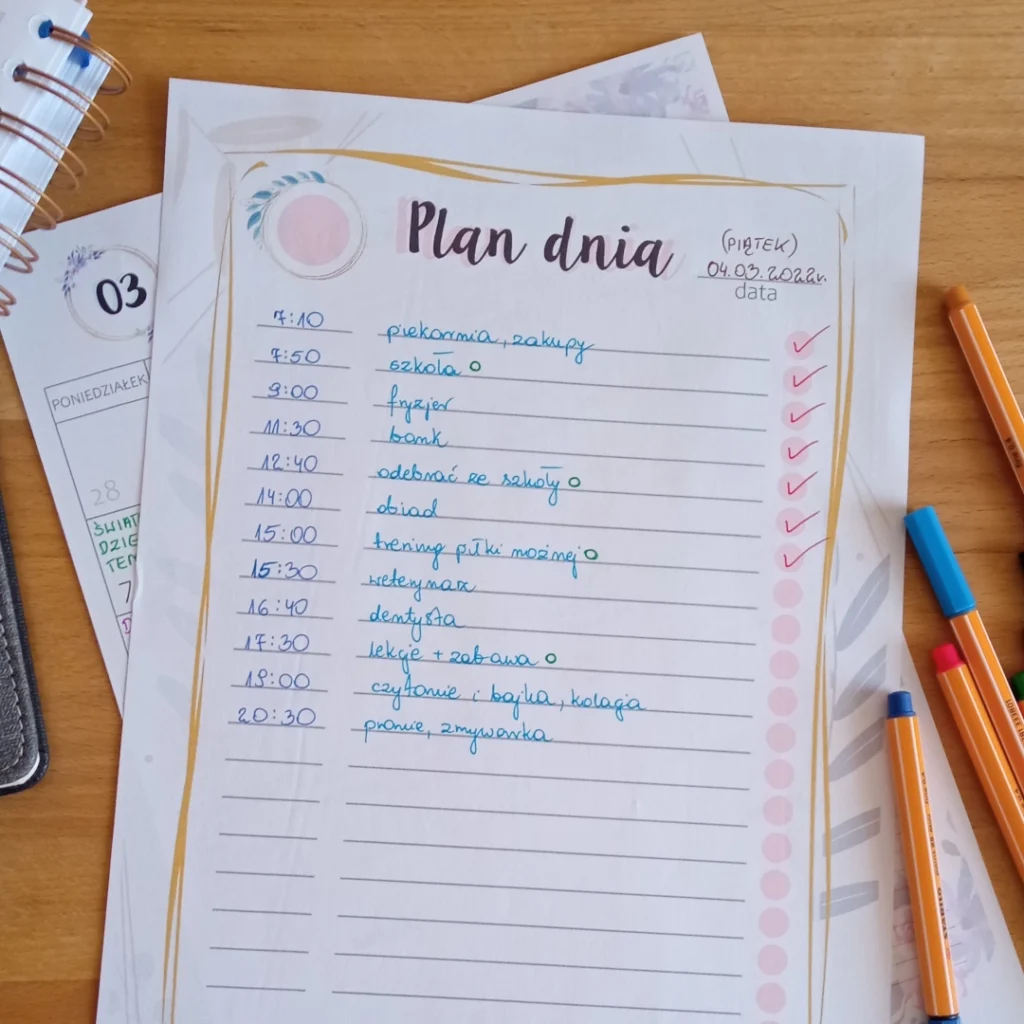 Plan dnia
(PIĄTEK)
04.03.2022r.
data
7:10 piekarnia, zakupy
7:50 szkoła
9:00 fryzjer
11:30 bank
12:40 odebrać ze szkoły
14:00 obiad
15:00 trening piłki nożnej
15:30 weterynarz
16:40 dentysta
17:30 lekcje + zabawa
19:00 czytanie i bajka, kolacja
20:30 pranie, zmywarka
03
PONIEDZIAŁEK
28
ŚWIAT
DZIE
TEN
7